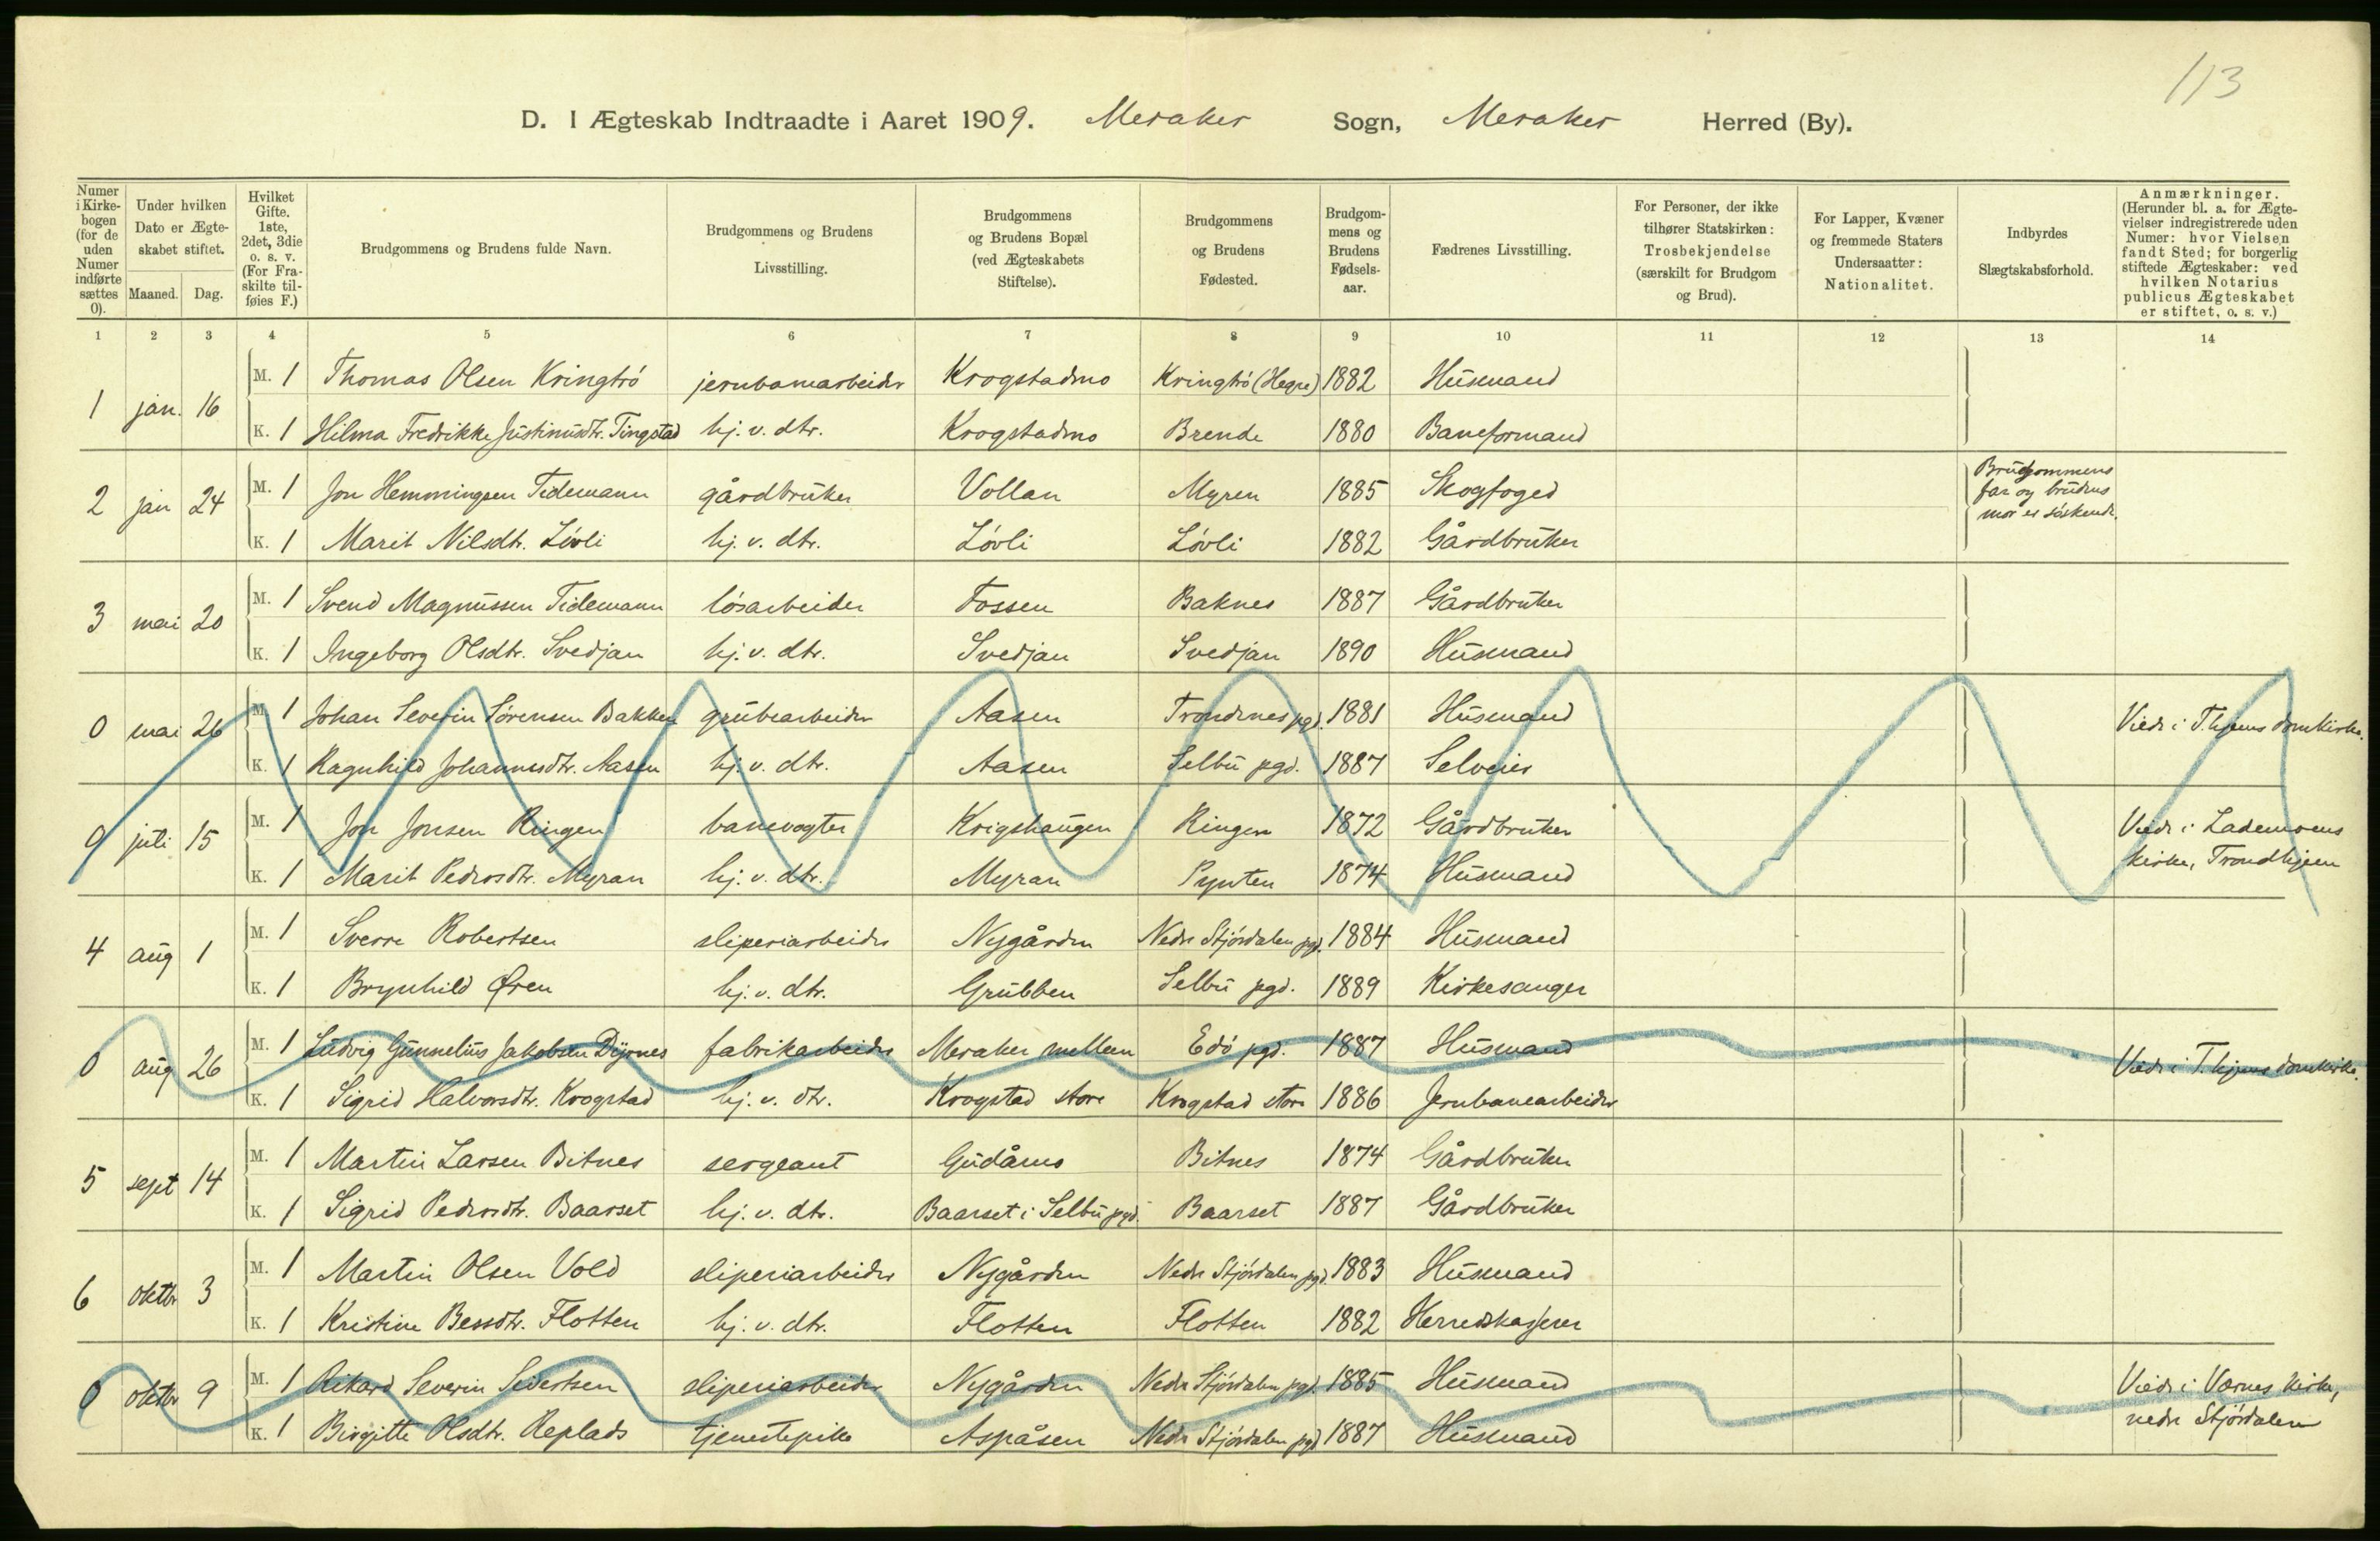 113
D. I Ægteskab Indtraadte i Aaret 1909. Meraker Sogn, Meraker Herred (By).
Numer i Kirkebogen (for de uden Numer indførte sættes 0).
Under hvilken Dato er Ægteskabet stiftet.
Maaned. Dag.
Hvilket Gifte. 1ste, 2det, 3die o. s. v. (For Fraskilte tilføies F.)
Brudgommens og Brudens fulde Navn.
Brudgommens og Brudens Livsstilling.
Brudgommens og Brudens Bopæl (ved Ægteskabets Stiftelse).
Brudgommens og Brudens Fødested.
Brudgommens og Brudens Fødselsaar.
Fædrenes Livsstilling.
For Personer, der ikke tilhører Statskirken: Trosbekjendelse (særskilt for Brudgom og Brud).
For Lapper, Kvæner og fremmede Staters Undersaatter: Nationalitet.
Indbyrdes Slægtskabsforhold.
Anmærkninger. (Herunder bl. a. for Ægtevielser indregistrerede uden Numer: hvor Vielsen fandt Sted; for borgerlig stiftede Ægteskaber: ved hvilken Notarius publicus Ægteskabet er stiftet, o. s. v.)
1 2 3 4 5 6 7 8 9 10 11 12 13 14
1 jan. 16 M. 1 Thomas Olsen Kringtrö jernbanearbeider Krogstadmo Kringtrö (Hegre) 1882 Husmand
K. 1 Hilma Fredrikke Justinusdtr. Tingstad hj. v. dtr. Krogstadmo Brende 1880 Baneformand
2 jan 24 M. 1 Jon Hemmingsen Tidemann gårdbruker Vollan Myren 1885 Skogfoged Brudgommens far og brudens mor er söskende.
K. 1 Marit Nilsdtr. Lövli hj. v. dtr. Lövli Lövli 1882 Gårdbruker
3 mai 20 M. 1 Svend Magnussen Tidemann lösarbeider Fossen Baknes 1887 Gårdbruker
K. 1 Ingeborg Olsdtr. Svedjan hj. v. dtr. Svedjan Svedjan 1890 Husmand
0 mai 26 M. 1 Johan Severin Sörensen Bakken grubearbeider Aasen Trondenes pgd. 1881 Husmand Viedt i T.hjems domkirke.
K. 1 Ragnhild Johannesdtr. Aasen hj. v. dtr. Aasen Selbu pgd. 1887 Selveier
0 juli 15 M. 1 Jon Jonsen Ringen banevogter Krigshaugen Ringen 1872 Gårdbruker Viedt i Lademoens
K. 1 Marit Pedersdtr. Myran hj. v. dtr. Myran Pynten 1874 Husmand kirke, Trondhjem
4 aug 1 M. 1 Sverre Robertsen sliperiarbeider Nygården Nedre Stjördalen pgd. 1884 Husmand
K. 1 Brynhild Øren hj. v. dtr. Grubben Selbu pgd. 1889 Kirkesanger
0 aug 26 M. 1 Ludvig Gunnelius Jakobsen Dyrnes fabrikarbeider Meraker mellem Edö pgd. 1887 Husmand Viedt i T.hjems domkirke.
K. 1 Sigrid Halvorsdtr. Krogstad hj. v. dtr. Krogstad store Krogstad store 1886 Jernbanearbeider
5 sept 14 M. 1 Martin Larsen Bitnes sergeant Gudåmo Bitnes 1874 Gårdbruker
K. 1 Sigrid Pedersdtr. Baarset hj. v. dtr. Baarset i Selbu pgd. Baarset 1887 Gårdbruker
6 oktbr 3 M. 1 Martin Olsen Vold sliperiarbeider Nygården Nedre Stjördalen pgd. 1883 Husmand
K. 1 Kristine Bersdtr. Flotten hj. v. dtr. Flotten Flotten 1882 Herredskasserer
0 oktbr 9 M. 1 Rikard Severin Sivertsen sliperiarbeider Nygården Nedre Stjördalen pgd. 1885 Husmand Viedt i Værnes kirke,
K. 1 Birgitte Olsdtr. Replads tjenestepike Aspåsen Nedre Stjördalen pgd. 1887 Husmand nedre Stjördalen